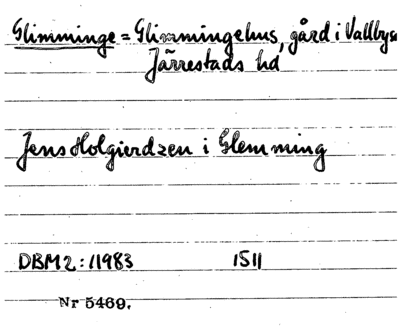 Glimminge = Glimmingehus, gård i Vallbys
Järrestads hd
Jens Holgierdzen i Glemming
DBM 2:11983 1511
Nr 5469.